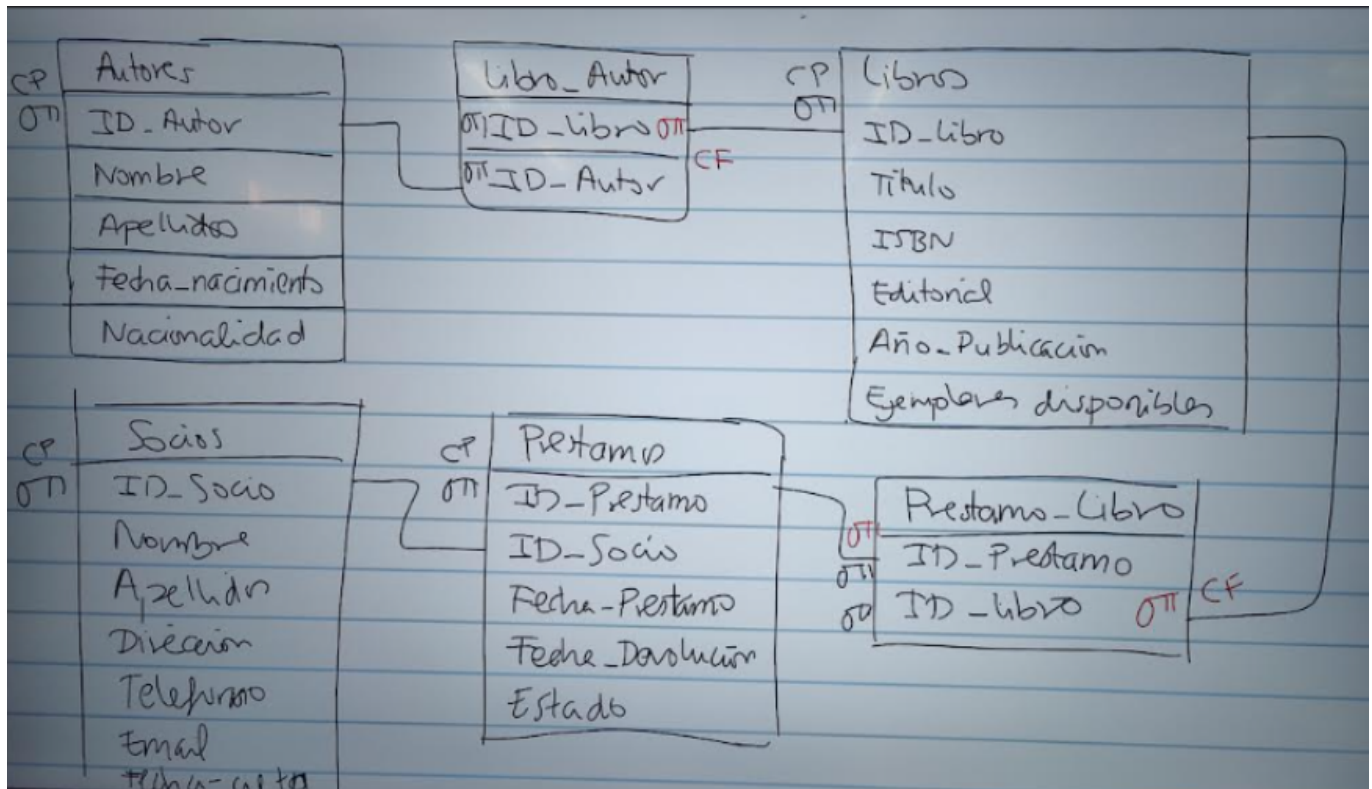 CP
Autores
ID_Autor
Nombre
Apellidos
Fecha_nacimiento
Nacionalidad
Libro_Autor
ID_Libro
ID_Autor
CF
CP
Libros
ID_Libro
Título
ISBN
Editorial
Año_Publicación
Ejemplares disponibles
CP
Socios
ID_Socio
Nombre
Apellidos
Dirección
Telefono
Email
CP
Prestamo
ID_Prestamo
ID_Socio
Fecha_Prestamo
Fecha_Devolución
Estado
Prestamo_Libro
ID_Prestamo
ID_Libro
CF